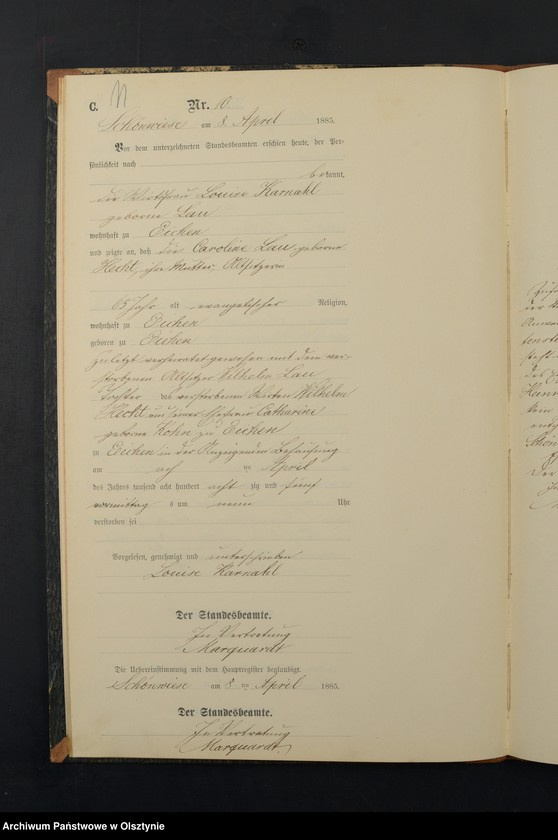 C.
Nr. 10.
Schönwiese am 8. April 1885.
Vor dem unterzeichneten Standesbeamten erschien heute, der Per-
sönlichkeit nach
bekannt,
die Wirthsfrau Louise Karnahl
geborne Lau
wohnhaft zu Eichen
und zeigte an, daß die Caroline Lau geborne
Hecht, ihre Mutter, Altsitzerin
65 Jahr alt evangelischer Religion,
wohnhaft zu Eichen
geboren zu Eichen
zuletzt verheiratet gewesen mit dem ver-
storbenen Altsitzer Wilhelm Lau
Tochter des verstorbenen Wirten Wilhelm
Hecht und seiner Ehefrau Catharine
geborne Hohn zu Eichen
in Eichen in der Anzeigenden Behausung
am ach ten April
des Jahres tausend acht hundert acht zig und fünf
vormittag s um neun Uhr
verstorben sei
Vorgelesen, genehmigt und unterschrieben
Louise Karnahl
Der Standesbeamte.
In Vertretung
Marquardt
Die Uebereinstimmung mit dem Hauptregister beglaubigt.
Schönwiese am 8 ten April 1885.
Der Standesbeamte.
In Vertretung
Marquardt
Archiwum Państwowe w Olsztynie